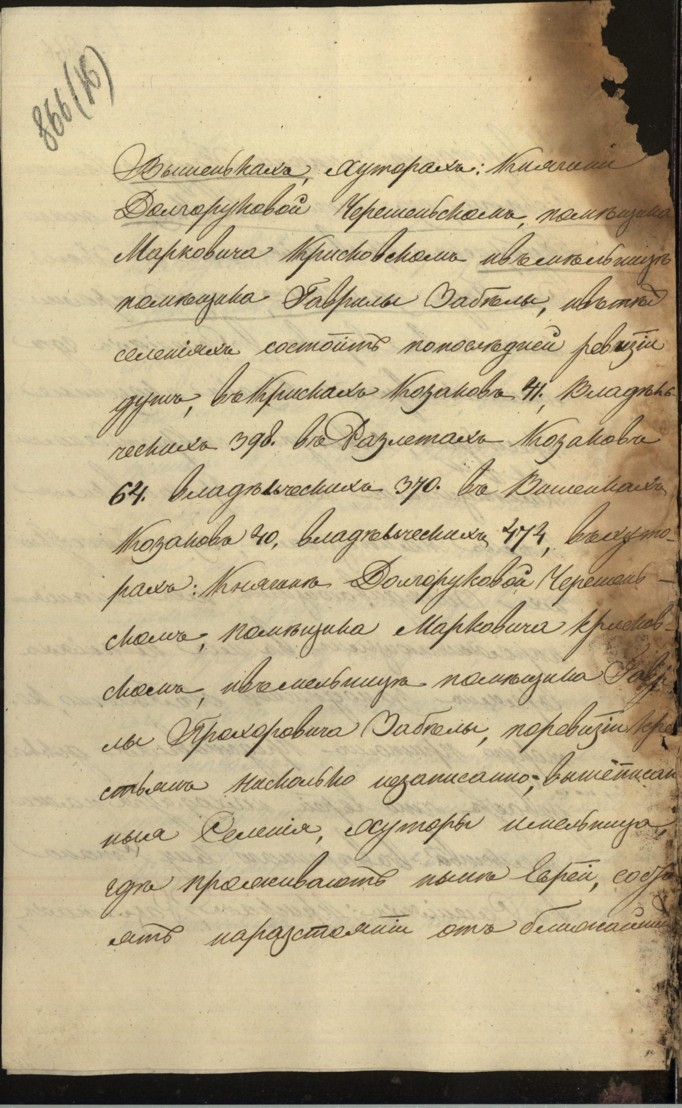 866 (16)
Вишенькахъ, хуторахъ: Княгини
Долгоруковой Черешенскомъ, помѣщика
Марковича Крисковскомъ ивъмельницѣ
помѣщика Гаврилы Забѣлы, ивътѣхъ
селеніяхъ состоитъ попослѣдней ревизіи
душъ, въКрискахъ Козаковъ 41, Владѣль
ческихъ 398. въ Разлетахъ Козаковъ
64. владѣльческихъ 370. въ Вишенкахъ
Козаковъ 20, владѣльческихъ 474, въхуто-
рахъ: Княгини Долгоруковой, Черешень-
скомъ, помѣщика Марковича крисков-
скомъ, ивъмельницѣ помѣщика Гаври
лы Прохоровича Забѣлы, поревизіи кре
стьянъ нисколько незаписанно; вышеписан
ныя Селенія, хуторы имельница,
гдѣ проживаютъ нынѣ Евреи, состо
ятъ наразстояніи отъ ближайшихъ